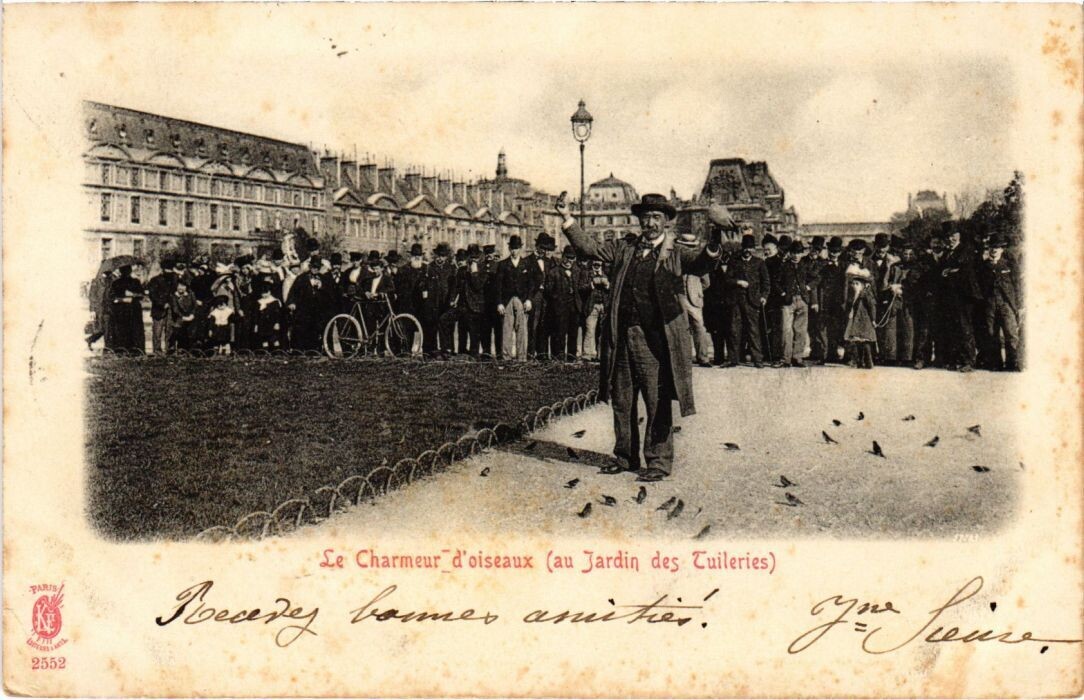 Le Charmeur d'oiseaux (au Jardin des Tuileries)
Recevez bonnes amitiés!
PARIS
2552